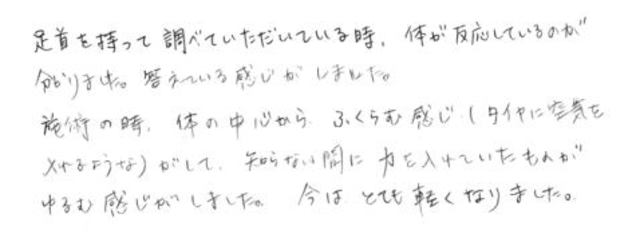 足首を持って調べていただいている時、体が反応しているのが
分かりました。答えている感じがしました。
施術の時、体の中心から ふくらむ感じ(タイヤに空気を
入れるような)がして、知らない間に力を入れていたものが
ゆるむ感じがしました。 今は とても軽くなりました。